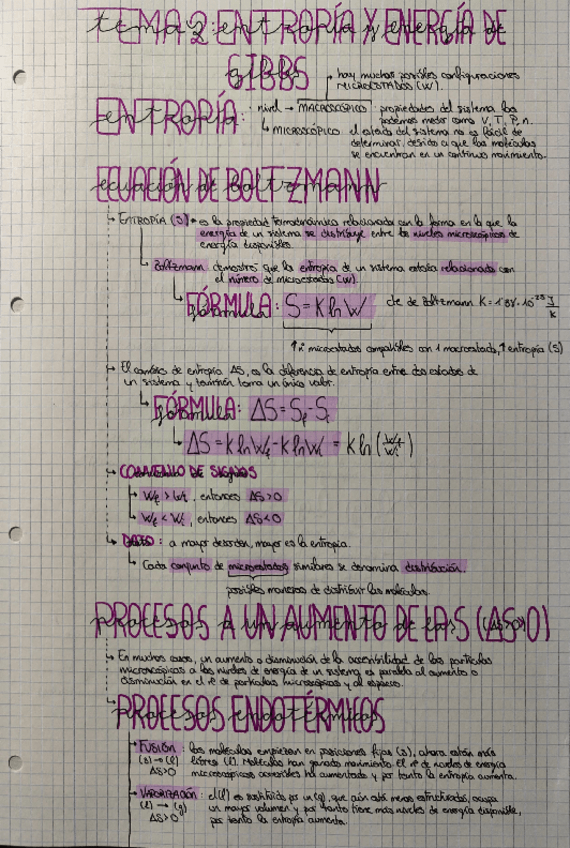 TEMA 2: ENTROPÍA Y ENERGÍA DE
GIBBS
hay muchas posibles configuraciones
MICROESTADOS (W).
ENTROPÍA: nivel → MACROSCÓPICO: propiedades del sistema las
podemos medir como V, T, P, n.
↳ MICROSCÓPICO: el estado del sistema no es fácil de
determinar, debido a que las moléculas
se encuentran en un continuo movimiento.
ECUACIÓN DE BOLTZMANN
ENTROPÍA (S) es la propiedad termodinámica relacionada con la forma en la que la
energía de un sistema se distribuye entre los niveles microscópicos de
energía disponibles.
Boltzmann demostró que la entropía de un sistema estaba relacionado con
el número de microestados (W).
FÓRMULA: S = K ln W cte de Boltzmann K = 1'38 · 10⁻²³ J/K
↑ nº microestados compatibles con 1 macroestado, ↑ entropía (S)
El cambio de entropía ΔS, es la diferencia de entropía entre dos estados de
un sistema y también toma un único valor.
FÓRMULA: ΔS = Sf - Si
ΔS = K ln Wf - K ln Wi = K ln (Wf/Wi)
CONVENIO DE SIGNOS
Wf > Wi, entonces ΔS>0
Wf < Wi, entonces ΔS<0
DATO: a mayor desorden, mayor es la entropía.
Cada conjunto de microestados similares se denomina distribución.
posibles maneras de distribuir las moléculas.
PROCESOS A UN AUMENTO DE LA S (ΔS>0)
En muchos casos, un aumento o disminución de la accesibilidad de las partículas
microscópicas a los niveles de energía de un sistema es paralela al aumento o
disminución en el nº de partículas microscópicas y al espacio.
PROCESOS ENDOTÉRMICOS
FUSIÓN: las moléculas empiezan en posiciones fijas (s), ahora están más
(s) → (l) libres (l). Moléculas han ganado movimiento. El nº de niveles de energía
ΔS>0 microscópicos accesibles ha aumentado y por tanto la entropía aumenta.
VAPORIZACIÓN: el (l) es sustituido por un (g), que aún está menos estructurado, ocupa
(l) → (g) un mayor volumen y por tanto tiene más niveles de energía disponible,
ΔS>0 por tanto la entropía aumenta.